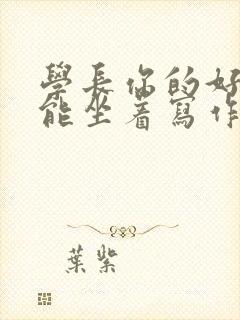 學長你的好
能坐着寫作
葉紫